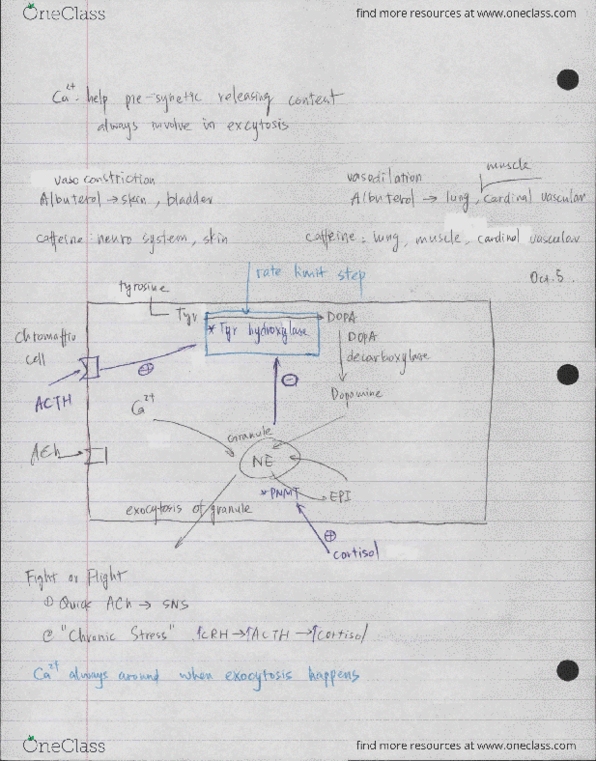 OneClass
find more resources at www.oneclass.com
Ca2+ help pre-synetic releasing content
always involve in excytosis
vaso constriction
Albuterol → skin, bladder
caffeine: neuro system, skin
vasodilation
muscle
Albuterol → lung, cardinal vascular
caffeine: lung, muscle, cardinal vascular
rate limit step
Oct. 5.
tyrosine
Tyr
* Tyr hydroxylase
DOPA
DOPA
decarboxylase
Dopamine
Chromaffin
cell
ACTH
⊕
⊖
Ca2+
ACh
Granule
NE
* PNMT
EPI
exocytosis of granule
⊕
cortisol
Fight or Flight
① Quick ACh → SNS
② "Chronic Stress" ↑CRH → ↑ACTH → ↑Cortisol
Ca2+ always around when exocytosis happens
OneClass
find more resources at www.oneclass.com